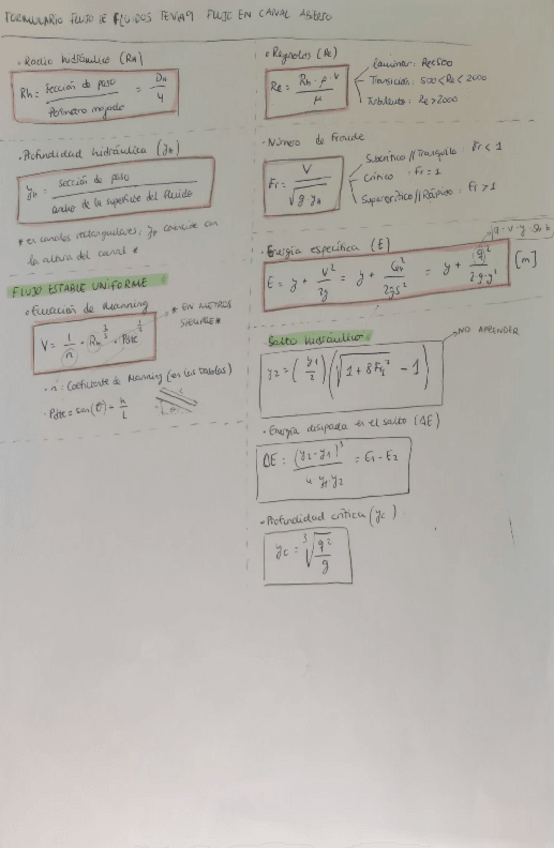 FORMULARIO FLUJO DE FLUIDOS TEMA 9 FLUJO EN CANAL ABIERTO
• Radio hidráulico (Rh)
Rh = Sección de paso / Perímetro mojado = Dh / 4
• Profundidad hidráulica (yh)
yh = sección de paso / ancho de la superficie del fluido
* en canales rectangulares, yh coincide con
la altura del canal *
FLUJO ESTABLE UNIFORME
• Ecuación de Manning
V = 1/n · Rh^2/3 · Pdte^1/2
* EN METROS
SIEMPRE *
• n: Coeficiente de Manning (en las tablas)
• Pdte = sen(θ) = h/L
• Reynolds (Re)
Re = Rh · ρ · v / μ
Laminar: Re<500
Transición: 500<Re<2000
Turbulento: Re>2000
• Número de Froude
Fr = V / √(g · yh)
Subcrítico // Tranquilo: Fr < 1
Crítico: Fr = 1
Supercrítico // Rápido: Fr > 1
• Energía específica (E)
E = y + V²/2g = y + Q²/2gs² = y + q²/2·g·y² [m]
Salto hidráulico
NO APRENDER
y2 = (y1/2) (√(1 + 8Fr1²) - 1)
• Energía disipada en el salto (ΔE)
ΔE = (y2-y1)³ / 4 y1 y2 = E1 - E2
• Profundidad crítica (yc)
yc = ³√(q²/g)